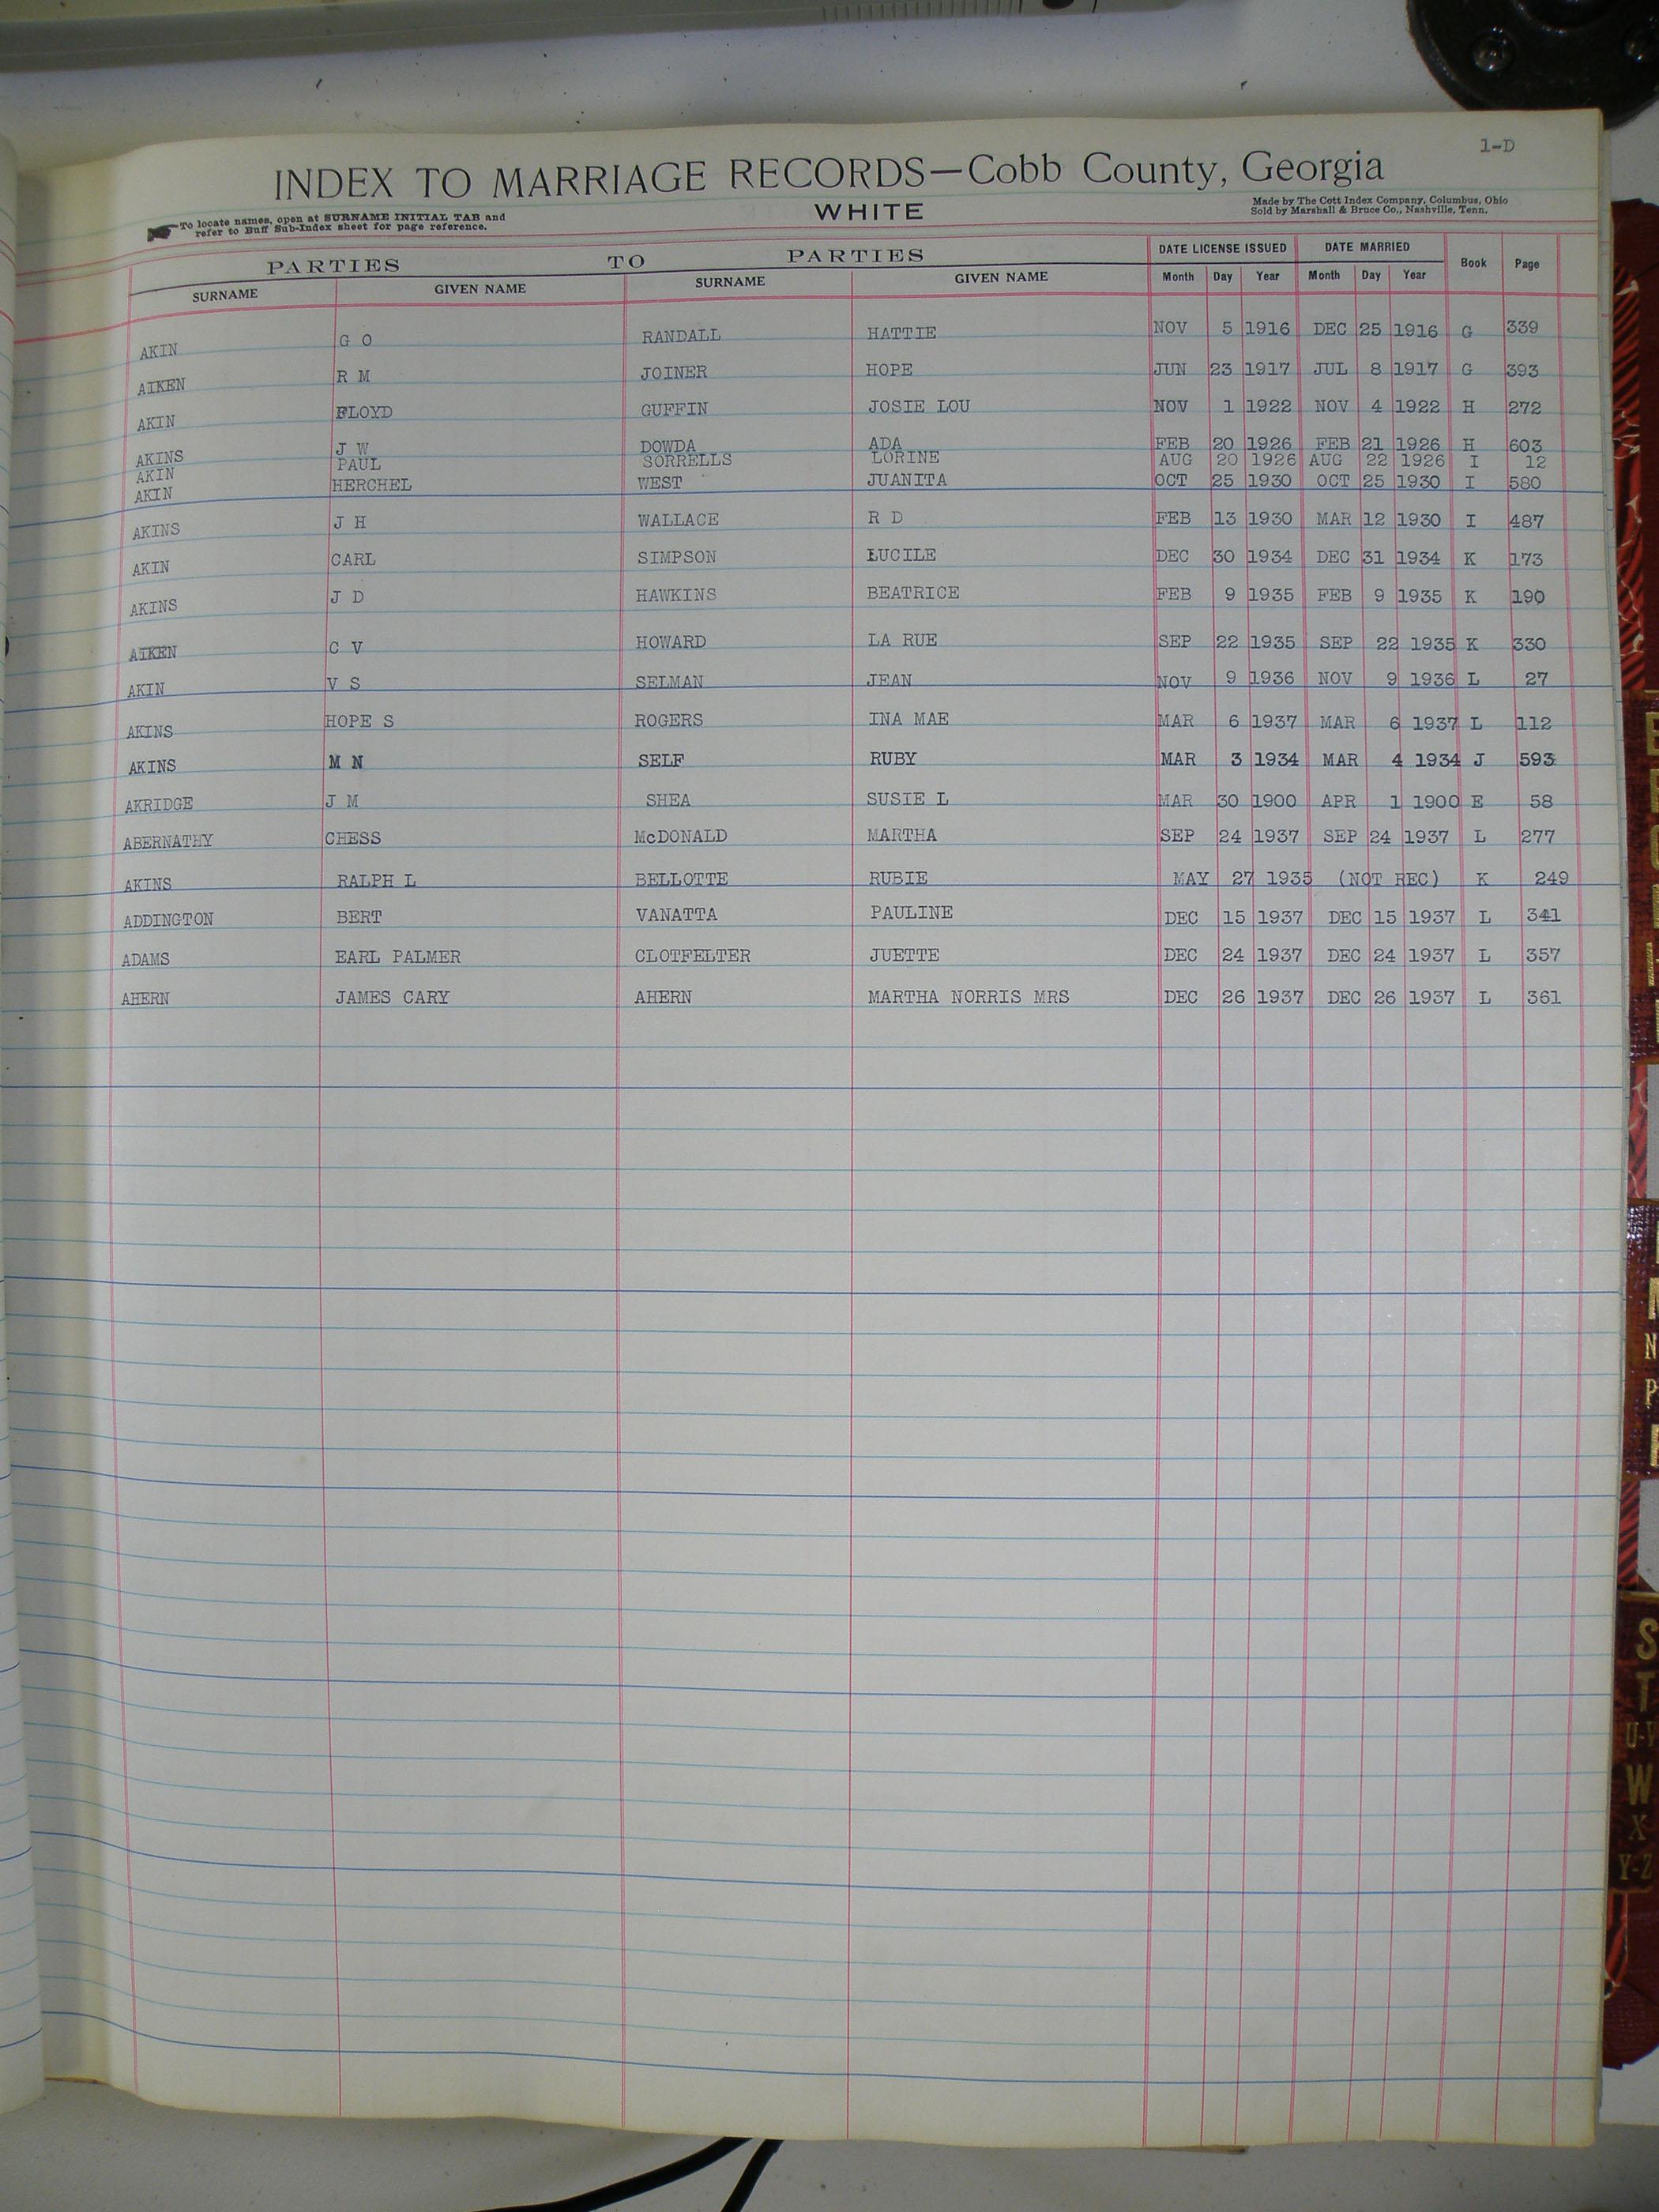 1-D
INDEX TO MARRIAGE RECORDS—Cobb County, Georgia
To locate names, open at SURNAME INITIAL TAB and
refer to Buff Sub-Index sheet for page reference.
WHITE
Made by The Cott Index Company, Columbus, Ohio
Sold by Marshall & Bruce Co., Nashville, Tenn.
PARTIES TO PARTIES DATE LICENSE ISSUED DATE MARRIED Book Page
SURNAME GIVEN NAME SURNAME GIVEN NAME Month Day Year Month Day Year
AKIN G O RANDALL HATTIE NOV 5 1916 DEC 25 1916 G 339
AIKEN R M JOINER HOPE JUN 23 1917 JUL 8 1917 G 393
AKIN FLOYD GUFFIN JOSIE LOU NOV 1 1922 NOV 4 1922 H 272
AKINS J W DOWDA ADA FEB 20 1926 FEB 21 1926 H 603
AKIN PAUL SORRELLS LORINE AUG 20 1926 AUG 22 1926 I 12
AKIN HERCHEL WEST JUANITA OCT 25 1930 OCT 25 1930 I 580
AKINS J H WALLACE R D FEB 13 1930 MAR 12 1930 I 487
AKIN CARL SIMPSON LUCILE DEC 30 1934 DEC 31 1934 K 173
AKINS J D HAWKINS BEATRICE FEB 9 1935 FEB 9 1935 K 190
AIKEN C V HOWARD LA RUE SEP 22 1935 SEP 22 1935 K 330
AKIN V S SELMAN JEAN NOV 9 1936 NOV 9 1936 L 27
AKINS HOPE S ROGERS INA MAE MAR 6 1937 MAR 6 1937 L 112
AKINS M N SELF RUBY MAR 3 1934 MAR 4 1934 J 593
AKRIDGE J M SHEA SUSIE L MAR 30 1900 APR 1 1900 E 58
ABERNATHY CHESS McDONALD MARTHA SEP 24 1937 SEP 24 1937 L 277
AKINS RALPH L BELLOTTE RUBIE MAY 27 1935 (NOT REC) K 249
ADDINGTON BERT VANATTA PAULINE DEC 15 1937 DEC 15 1937 L 341
ADAMS EARL PALMER CLOTFELTER JUETTE DEC 24 1937 DEC 24 1937 L 357
AHERN JAMES CARY AHERN MARTHA NORRIS MRS DEC 26 1937 DEC 26 1937 L 361
N
P
S
T
U-V
W
X
Y-Z